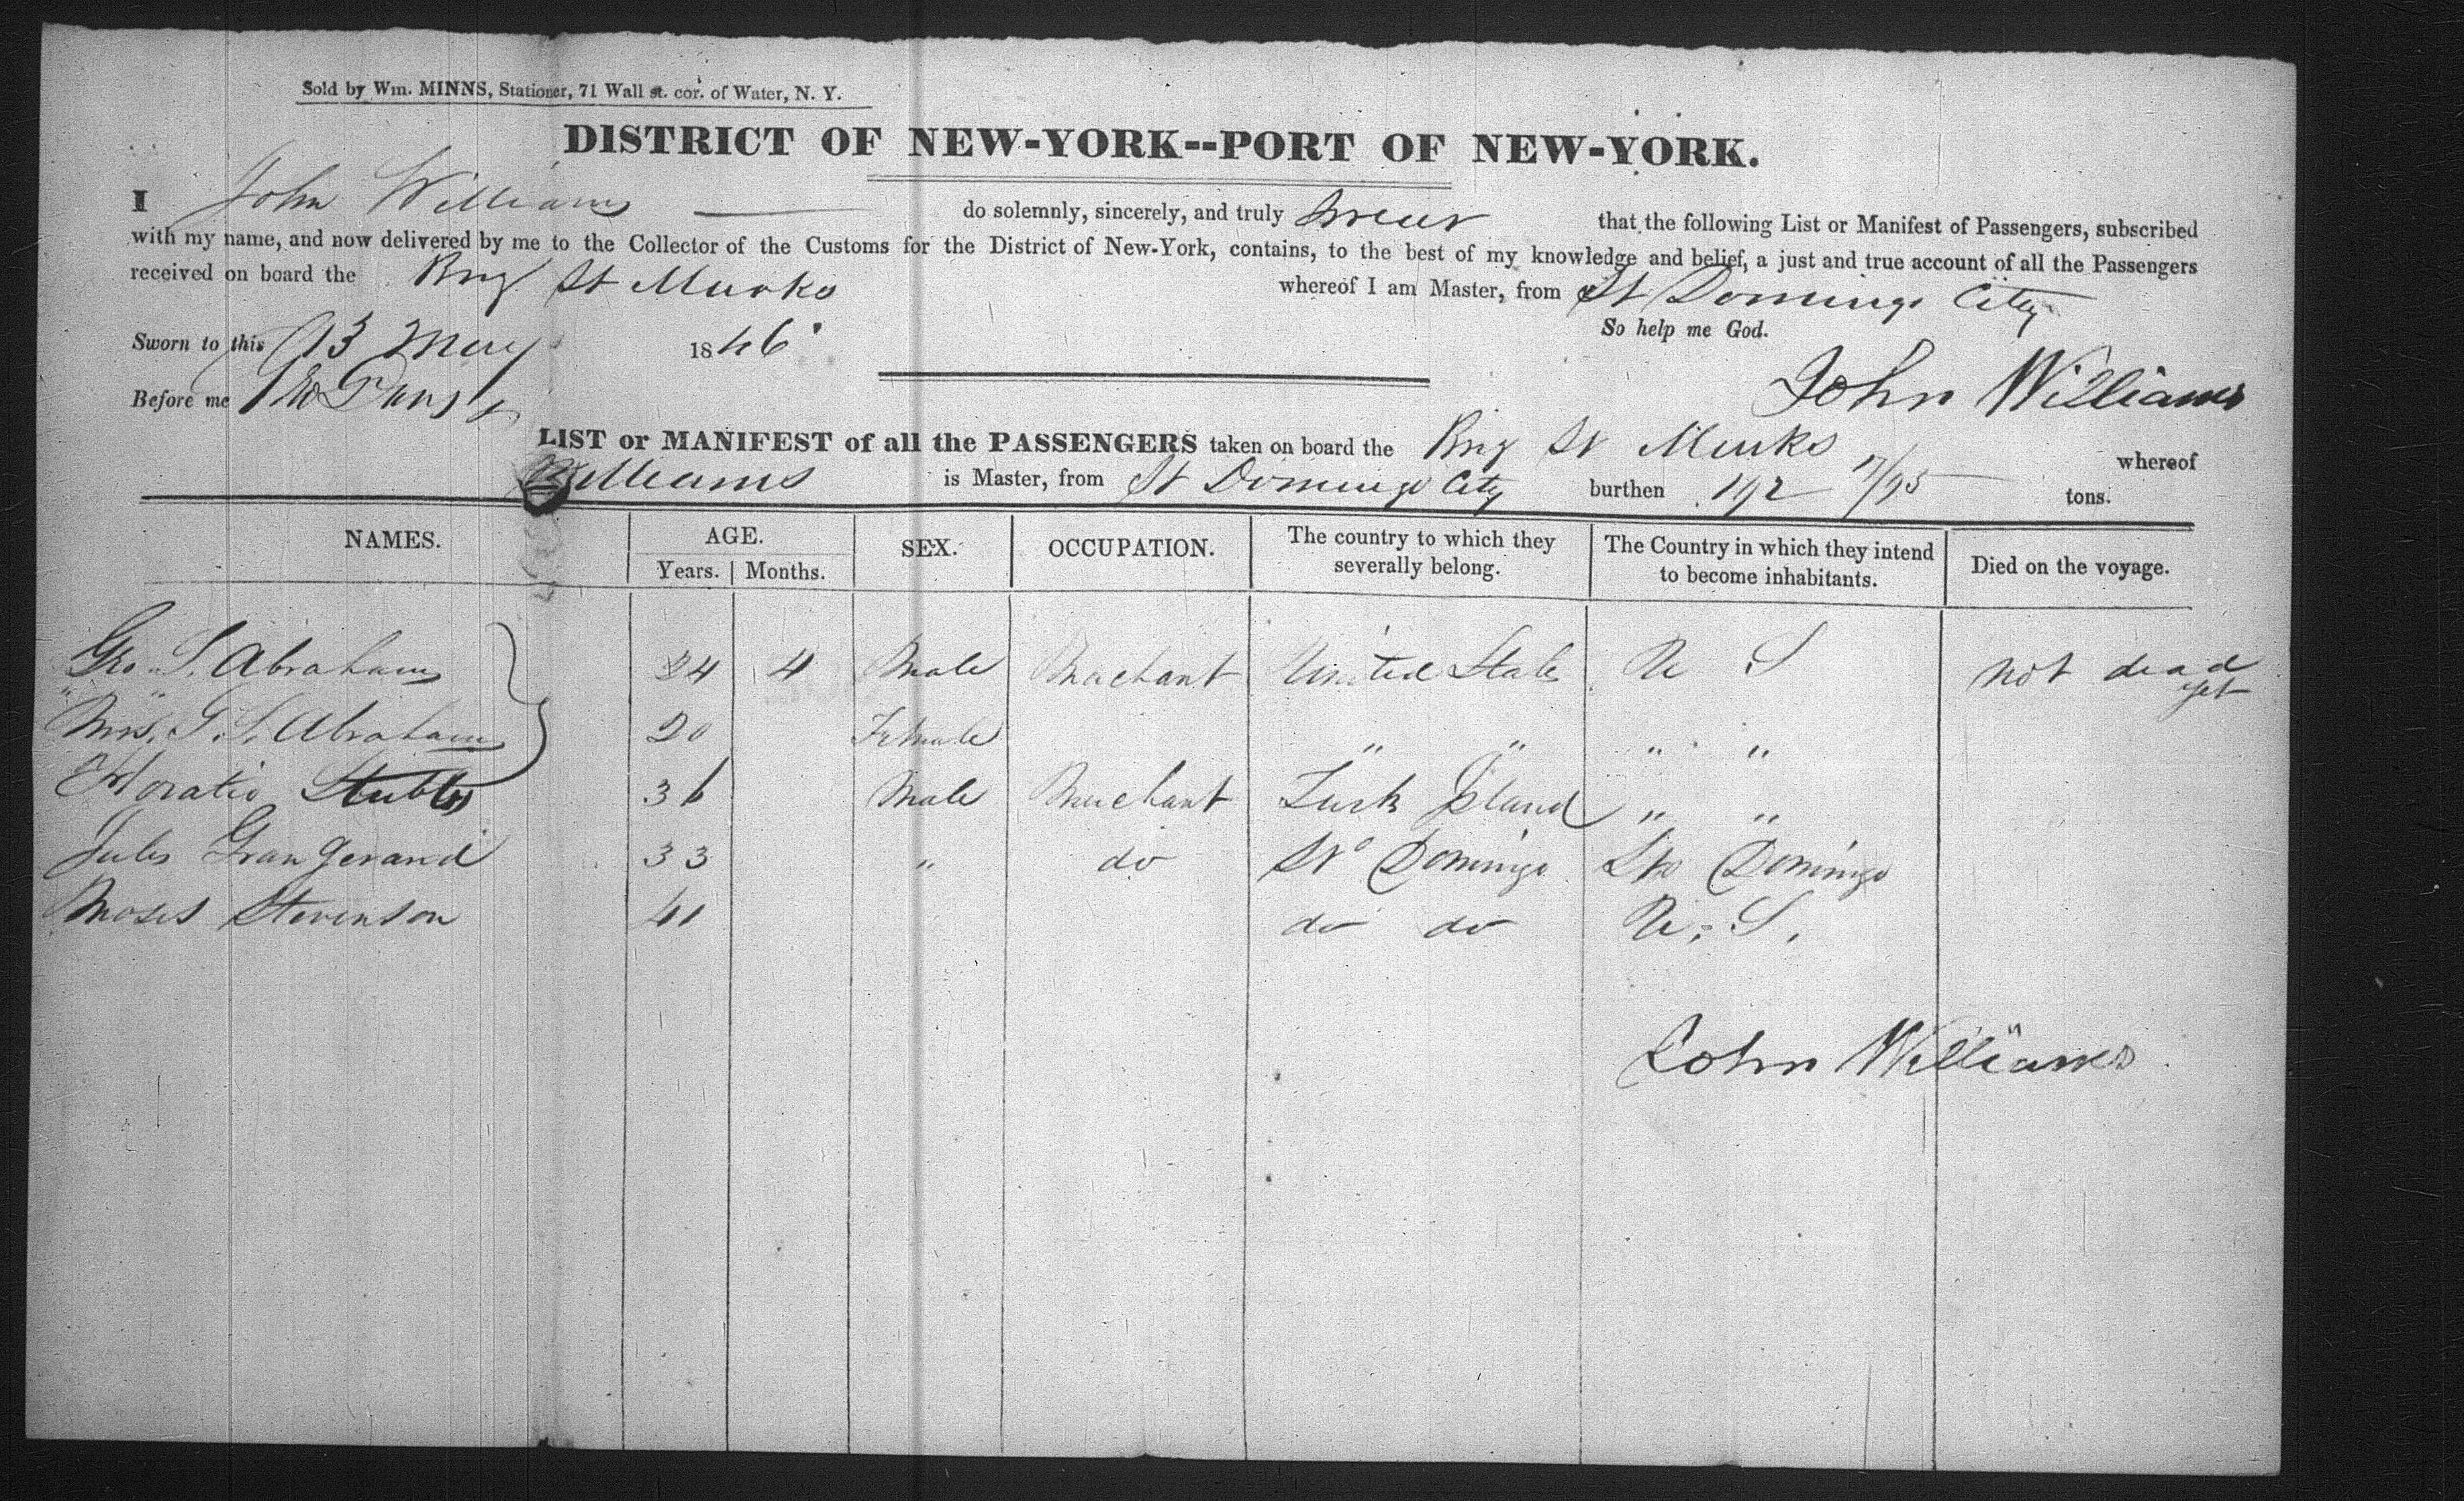 Sold by Wm. MINNS, Stationer, 71 Wall st. cor. of Water, N. Y.
DISTRICT OF NEW-YORK--PORT OF NEW-YORK.
I John Williams do solemnly, sincerely, and truly swear that the following List or Manifest of Passengers, subscribed
with my name, and now delivered by me to the Collector of the Customs for the District of New-York, contains, to the best of my knowledge and belief, a just and true account of all the Passengers
received on board the Brig St Marks whereof I am Master, from St Domingo City
So help me God.
Sworn to this 13 May 1846
John Williams
Before me
LIST or MANIFEST of all the PASSENGERS taken on board the Brig St Marks whereof
Williams is Master, from St Domingo City burthen 192 17/95 tons.
NAMES. AGE. SEX. OCCUPATION. The country to which they severally belong. The Country in which they intend to become inhabitants. Died on the voyage.
Years. Months.
Geo. S. Abraham 24 4 Male Merchant United States U S not dead yet
Mrs. G. S. Abraham 20 Female " " " "
Horatio Stubbs 36 Male Merchant Turk Island " "
Jules 33 " do Sto Domingo Sto Domingo
Moses Stevenson 41 do do U. S.
John Williams